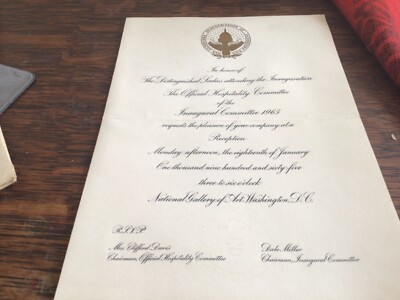 In honor of
The Distinguished Ladies attending the Inauguration
The Official Hospitality Committee
of the
Inaugural Committee 1965
requests the pleasure of your company at a
Reception
Monday afternoon, the eighteenth of January
One thousand nine hundred and sixty-five
three to six o'clock
National Gallery of Art, Washington, D.C.
R.S.V.P.
Mrs. Clifford Davis
Chairman, Official Hospitality Committee
Dale Miller
Chairman, Inaugural Committee